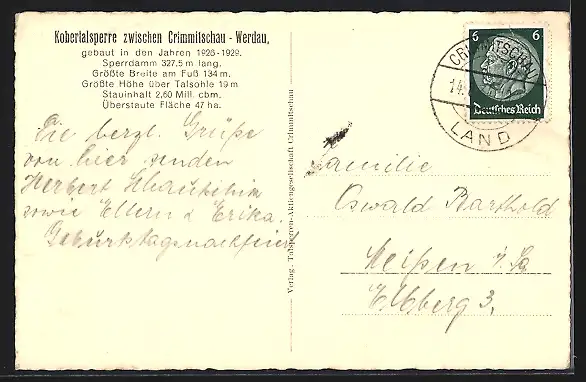 Kobertalsperre zwischen Crimmitschau - Werdau,
gebaut in den Jahren 1926-1929.
Sperrdamm 327,5 m lang.
Größte Breite am Fuß 134 m.
Größte Höhe über Talsohle 19 m
Stauinhalt 2,60 Mill. cbm.
Überstaute Fläche 47 ha.
Die herzl. Grüße
von hier senden
Herbert
sowie Eltern & Erika.
Verlag: Talsperren-Aktiengesellschaft Crimmitschau
6 6
Deutsches Reich
CRIMMITSCHAU
14.
LAND
Familie
Oswald Barthold
Meißen i/Sa
Elbberg 3.